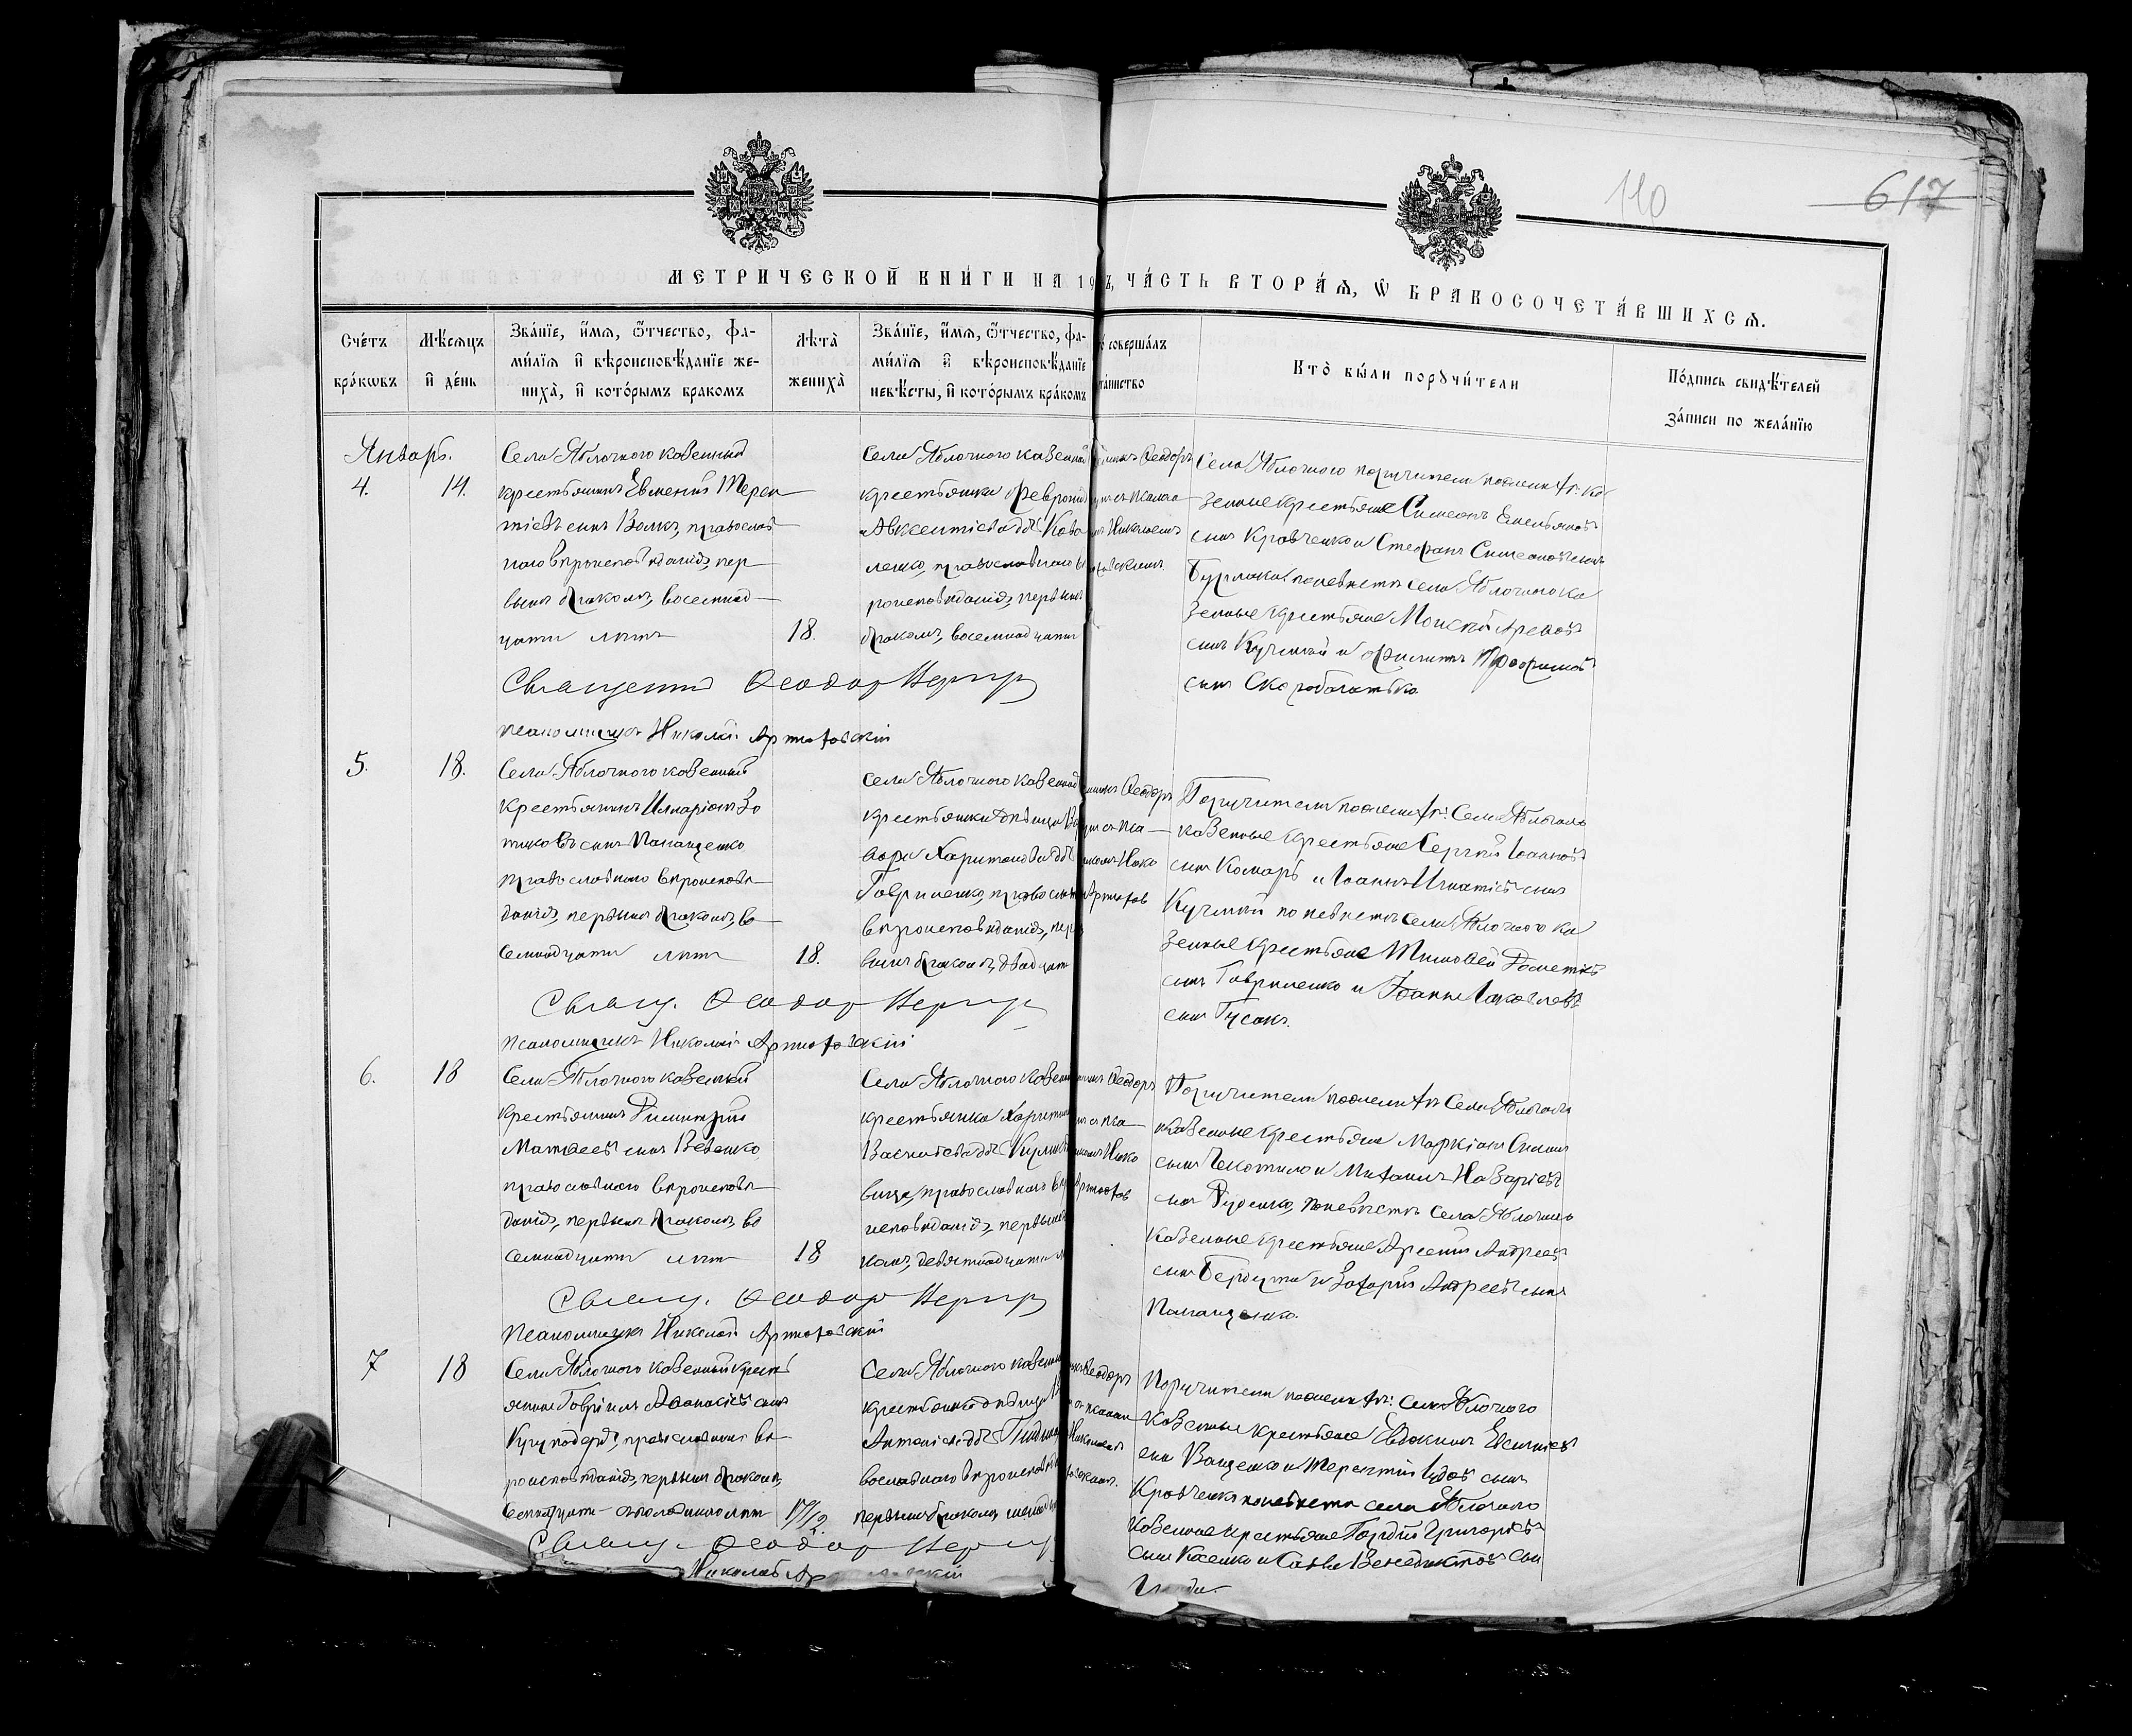 110
617
МЕТРИЧЕСКОЙ КНИ́ГИ НА 19 Ъ, ЧА́СТЬ ВТОРА́Ѧ, Ѿ БРАКОСОЧЕТА́ВШИХСѦ.
Сче́тъ
бра́кѡвъ
Мѣ́сѧцъ
и҆ де́нь
Зва́нїе, и҆́мѧ, ѻ҆́тчество, фа-
ми́лїѧ и҆ вѣроисповѣ́данїе же-
ниха̀, и҆ кото́рымъ бракомъ
Лѣта̀
жениха̀
Зва́нїе, и҆́мѧ, ѻ҆́тчество, фа-
ми́лїѧ и҆ вѣроисповѣ́данїе
невѣ́сты, и҆ кото́рымъ бра́комъ
соверша́лъ
та́инство
Кто̀ бы́ли порꙋчи́тели
По́дпись свидѣ́телей
за́писи по жела́нїю
Январь.
4.
14.
Села Яблочного казенный
крестьянинъ Евмений Терен
тіевъ сынъ Волкъ, православ
наго вѣроисповѣданія, пер
вымъ бракомъ, восемнад
цати лѣтъ
18.
села Яблочного казенной
крестьянки Февронія
Авксентіева дч. Кова
ленко, православнаго вѣ
роисповѣданія, первымъ
бракомъ, восемнадцати
Феодоръ
Николаемъ
Села Яблочного поручители по женихѣ: ка
зенные крестьяне Симеонъ Емельяновъ
сынъ Кравченко и Стефанъ Симеоновъ сынъ
Бурлака, по невѣстѣ села Яблочного ка
зенные крестьяне Моисей
сынъ Кучмій и Филиппъ Трофимовъ
сынъ Скоробагатько.
Священникъ Феодоръ
псаломщикъ Николай Артюховскій
5.
18.
Села Яблочного казенный
крестьянинъ Илларіонъ Зо
тиковъ сынъ Панащенко
православнаго вѣроисповѣ
данія, первымъ бракомъ, во
семнадцати лѣтъ
18.
села Яблочного казенной
крестьянки дѣвица Вар
вара Харитонова дч.
Гавриленко, православн
вѣроисповѣданія, пер
вымъ бракомъ, двадцати
Феодоръ
Нико
Артюхов
Поручители по женихѣ: Села Яблочного
казенные крестьяне Сергій Іоанновъ
сынъ Комаръ и Іоаннъ Игнатіевъ сынъ
Кучмій по невѣстѣ села Яблочного ка
зенные крестьяне Тимофей Дометіевъ
сынъ Гавриленко и Іоаннъ Іаковлевъ
сынъ Гусакъ.
Свящ. Феодоръ
псаломщикъ Николай Артюховскій
6.
18
Села Яблочного казенный
крестьянинъ Димитрій
Матвеевъ сынъ Везенко
православнаго вѣроисповѣ
данія, первымъ бракомъ, во
семнадцати лѣтъ
18
Села Яблочного казен
крестьянка Харитина
Васильева дч.
вица, православнаго вѣ
исповѣданія, первымъ
комъ, девятнадцати л
Феодоръ
Нико
Артюхов
Поручители по женихѣ Села Яблочного
казенные крестьяне Маркіанъ
сынъ Чекотило и Михаилъ Назаріевъ
сынъ Руденко, по невѣстѣ села Яблочного
казенные крестьяне Арсеній Андреевъ
сынъ Бердута и Захарій Андреевъ сынъ
Панащенко.
Свящ. Феодоръ
Псаломщикъ Николай Артюховскій
7
18
Села Яблочного казенный кресть
янинъ Гавріилъ Афанасіевъ сынъ
православнаго вѣ
роисповѣданія, первымъ бракомъ,
семнадцати съ половиною лѣтъ
17 1/2.
Села Яблочного казен
крестьянка дѣвица
Антоніева дч.
вославнаго вѣроисповѣд
первымъ бракомъ
Феодоръ
псалом
Николаемъ
Поручители по женихѣ: села Яблочного
казенные крестьяне Евдокимъ
сынъ Ващенко и Терентій сынъ
Кравченко по невѣстѣ села Яблочного
казенные крестьяне Гордій Григоріевъ
сынъ и Савва Венедиктовъ сынъ
Свящ. Феодоръ
Николай